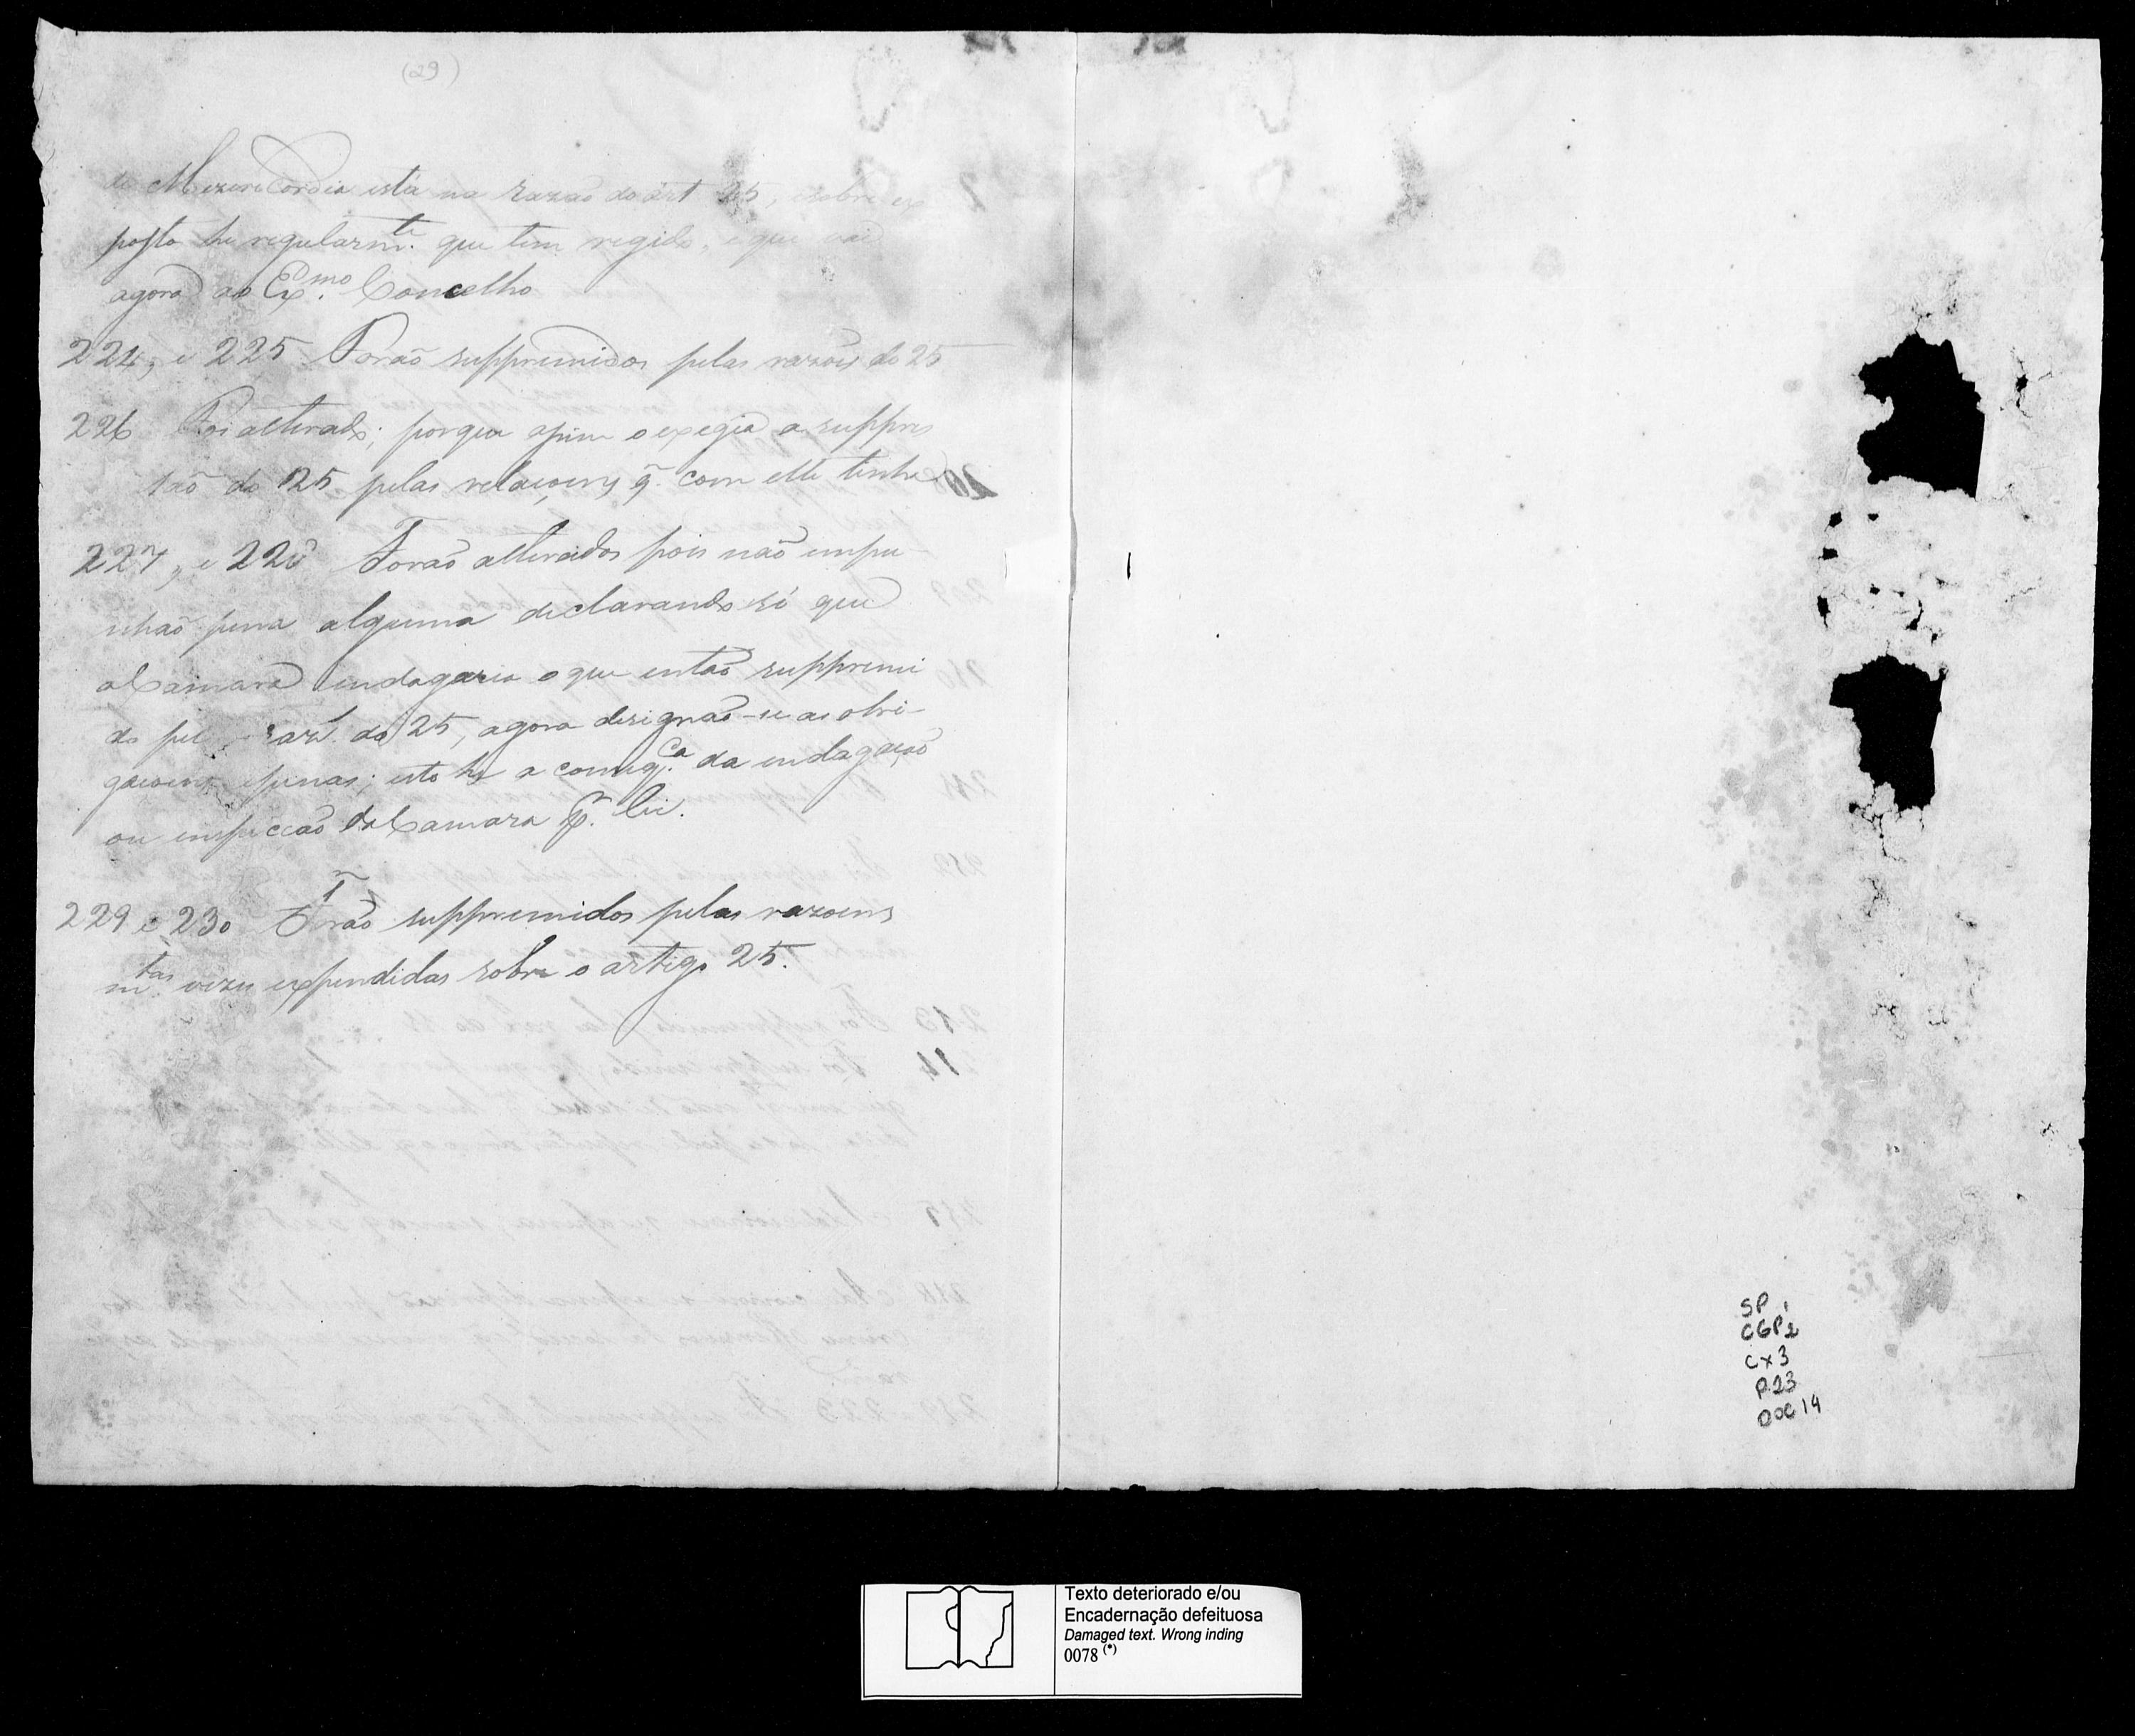 (29)
de Mizericordia está na razão do art 25, e sobre ex
posto he regularmte. que tem regido, e que vai
agora ao Exmo. Concelho
224, e 225 Forão suppremidos pelas razois do 25
226 Foi alterado; porque assim o exegia a suppres
são do 25 pelas relaçoens q. com elle tinha
227, e 228 Forão alterados pois não impu-
nhão pena alguma declarando só que
a Camara indagaria o que então supprimi
do pel raz. do 25, agora designão-se as obri-
gaçoens e penas; isto he a conseqca. da indagação
ou inspecção da Camara
229 e 230 Forão suppremidos pelas razoens
mtas. vezes expendidas sobre o artigo 25.
SP
CGP2
Cx3
P.23
DOC 14
Texto deteriorado e/ou
Encadernação defeituosa
Damaged text. Wrong inding
0078 (*)